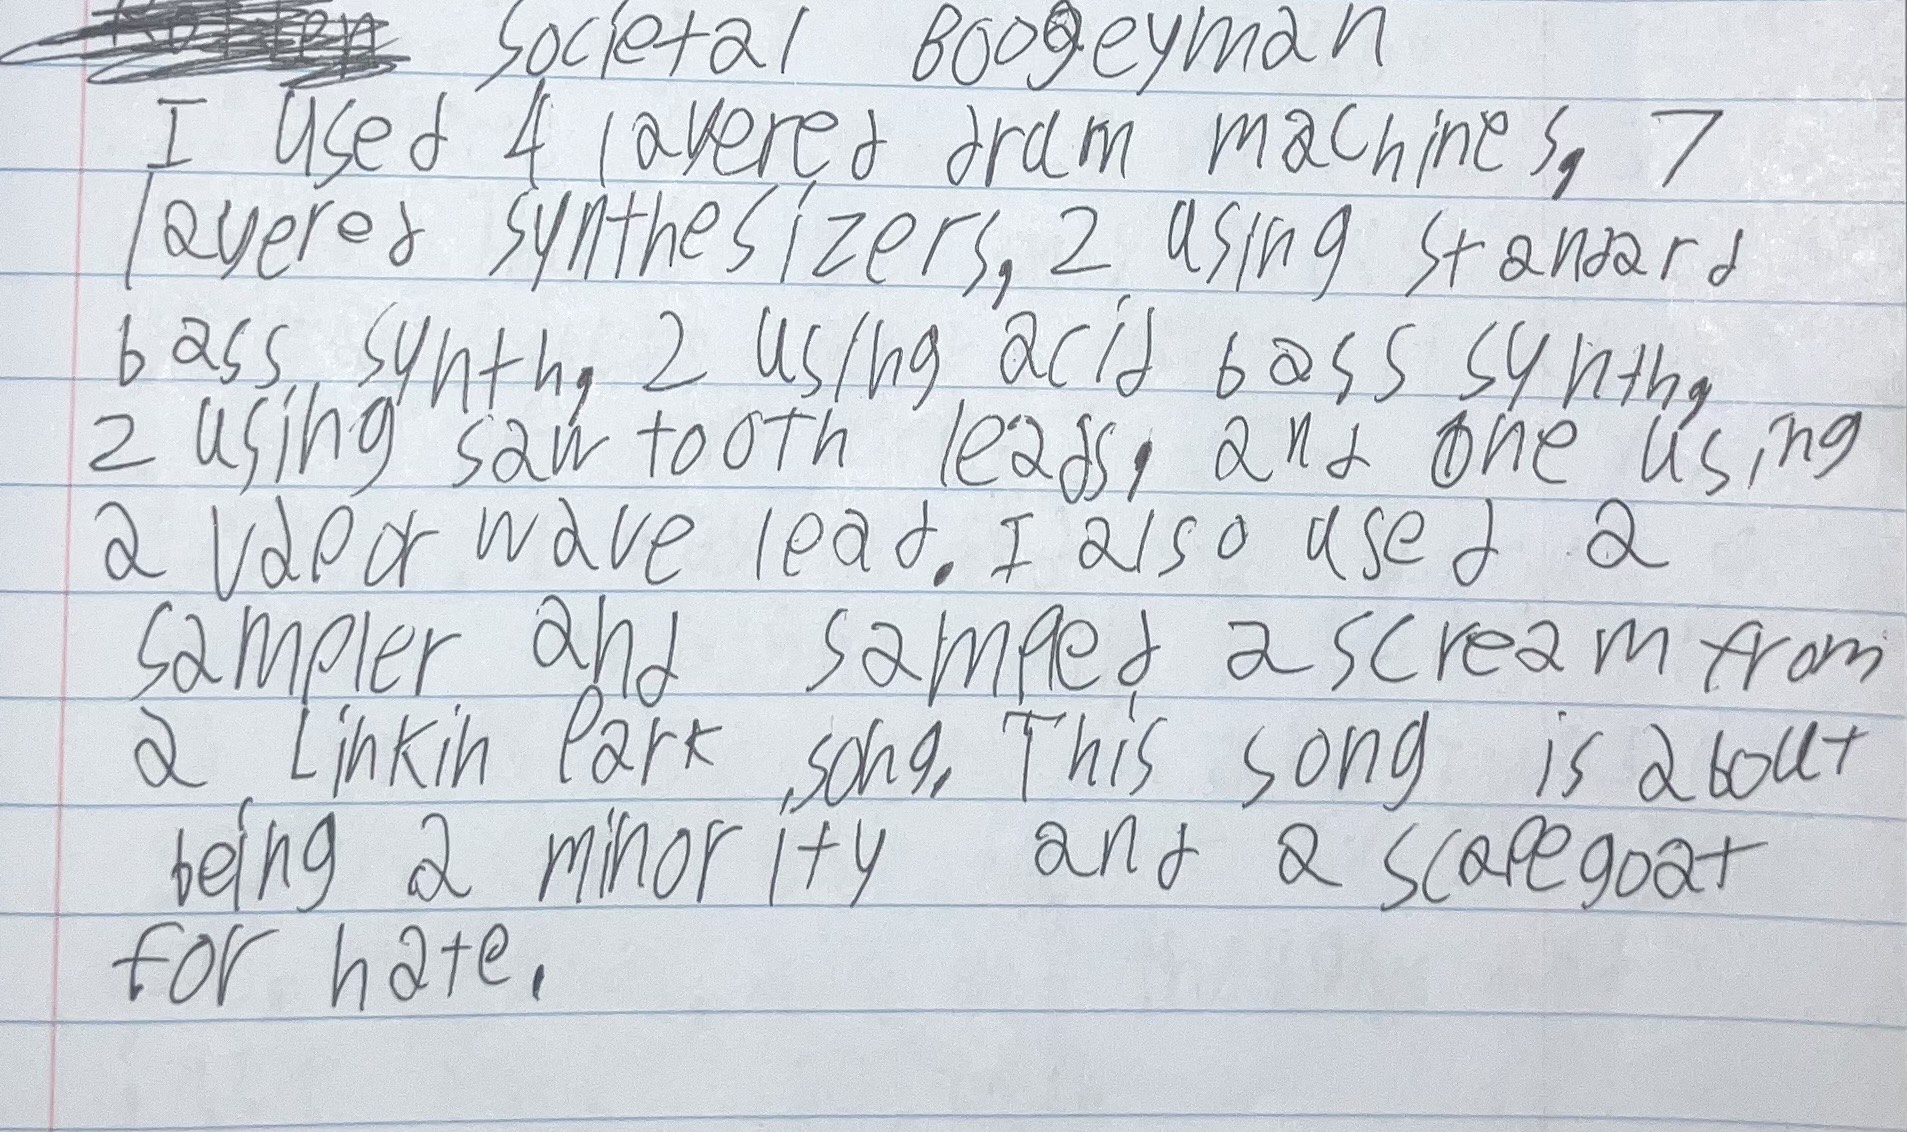 Societal Boogeyman
I used 4 layered drum machines, 7
layered synthesizers, 2 using standard
bass synth, 2 using acid bass synth,
2 using saw tooth leads, and one using
a vapor wave lead. I also used a
sampler and sampled a scream from
a Linkin Park song. This song is about
being a minority and a scapegoat
for hate.